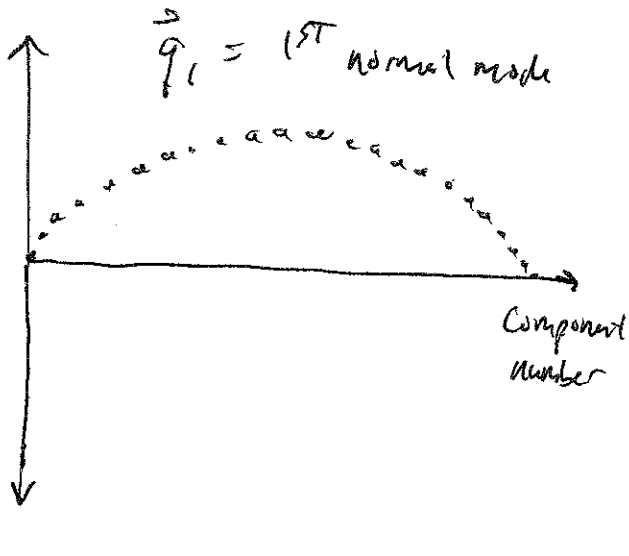 q⃗₁ = 1ST normal mode
Component
number